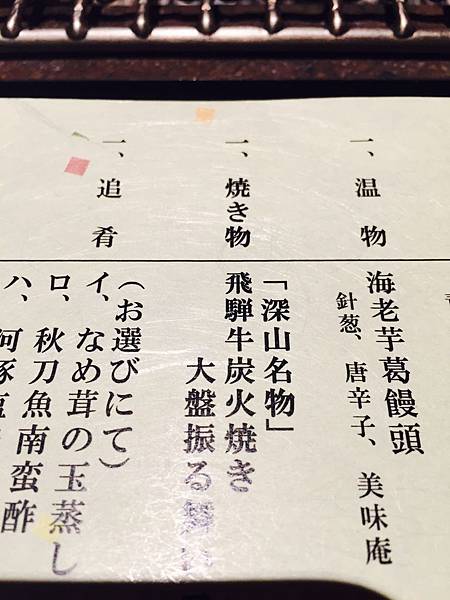 一、温物
海老芋葛饅頭
針葱、唐辛子、美味庵
一、焼き物
「深山名物」
飛騨牛炭火焼き
大盤振る舞い
一、追肴
(お選びにて)
イ、なめ茸の玉蒸し
ロ、秋刀魚南蛮酢
ハ、河豚